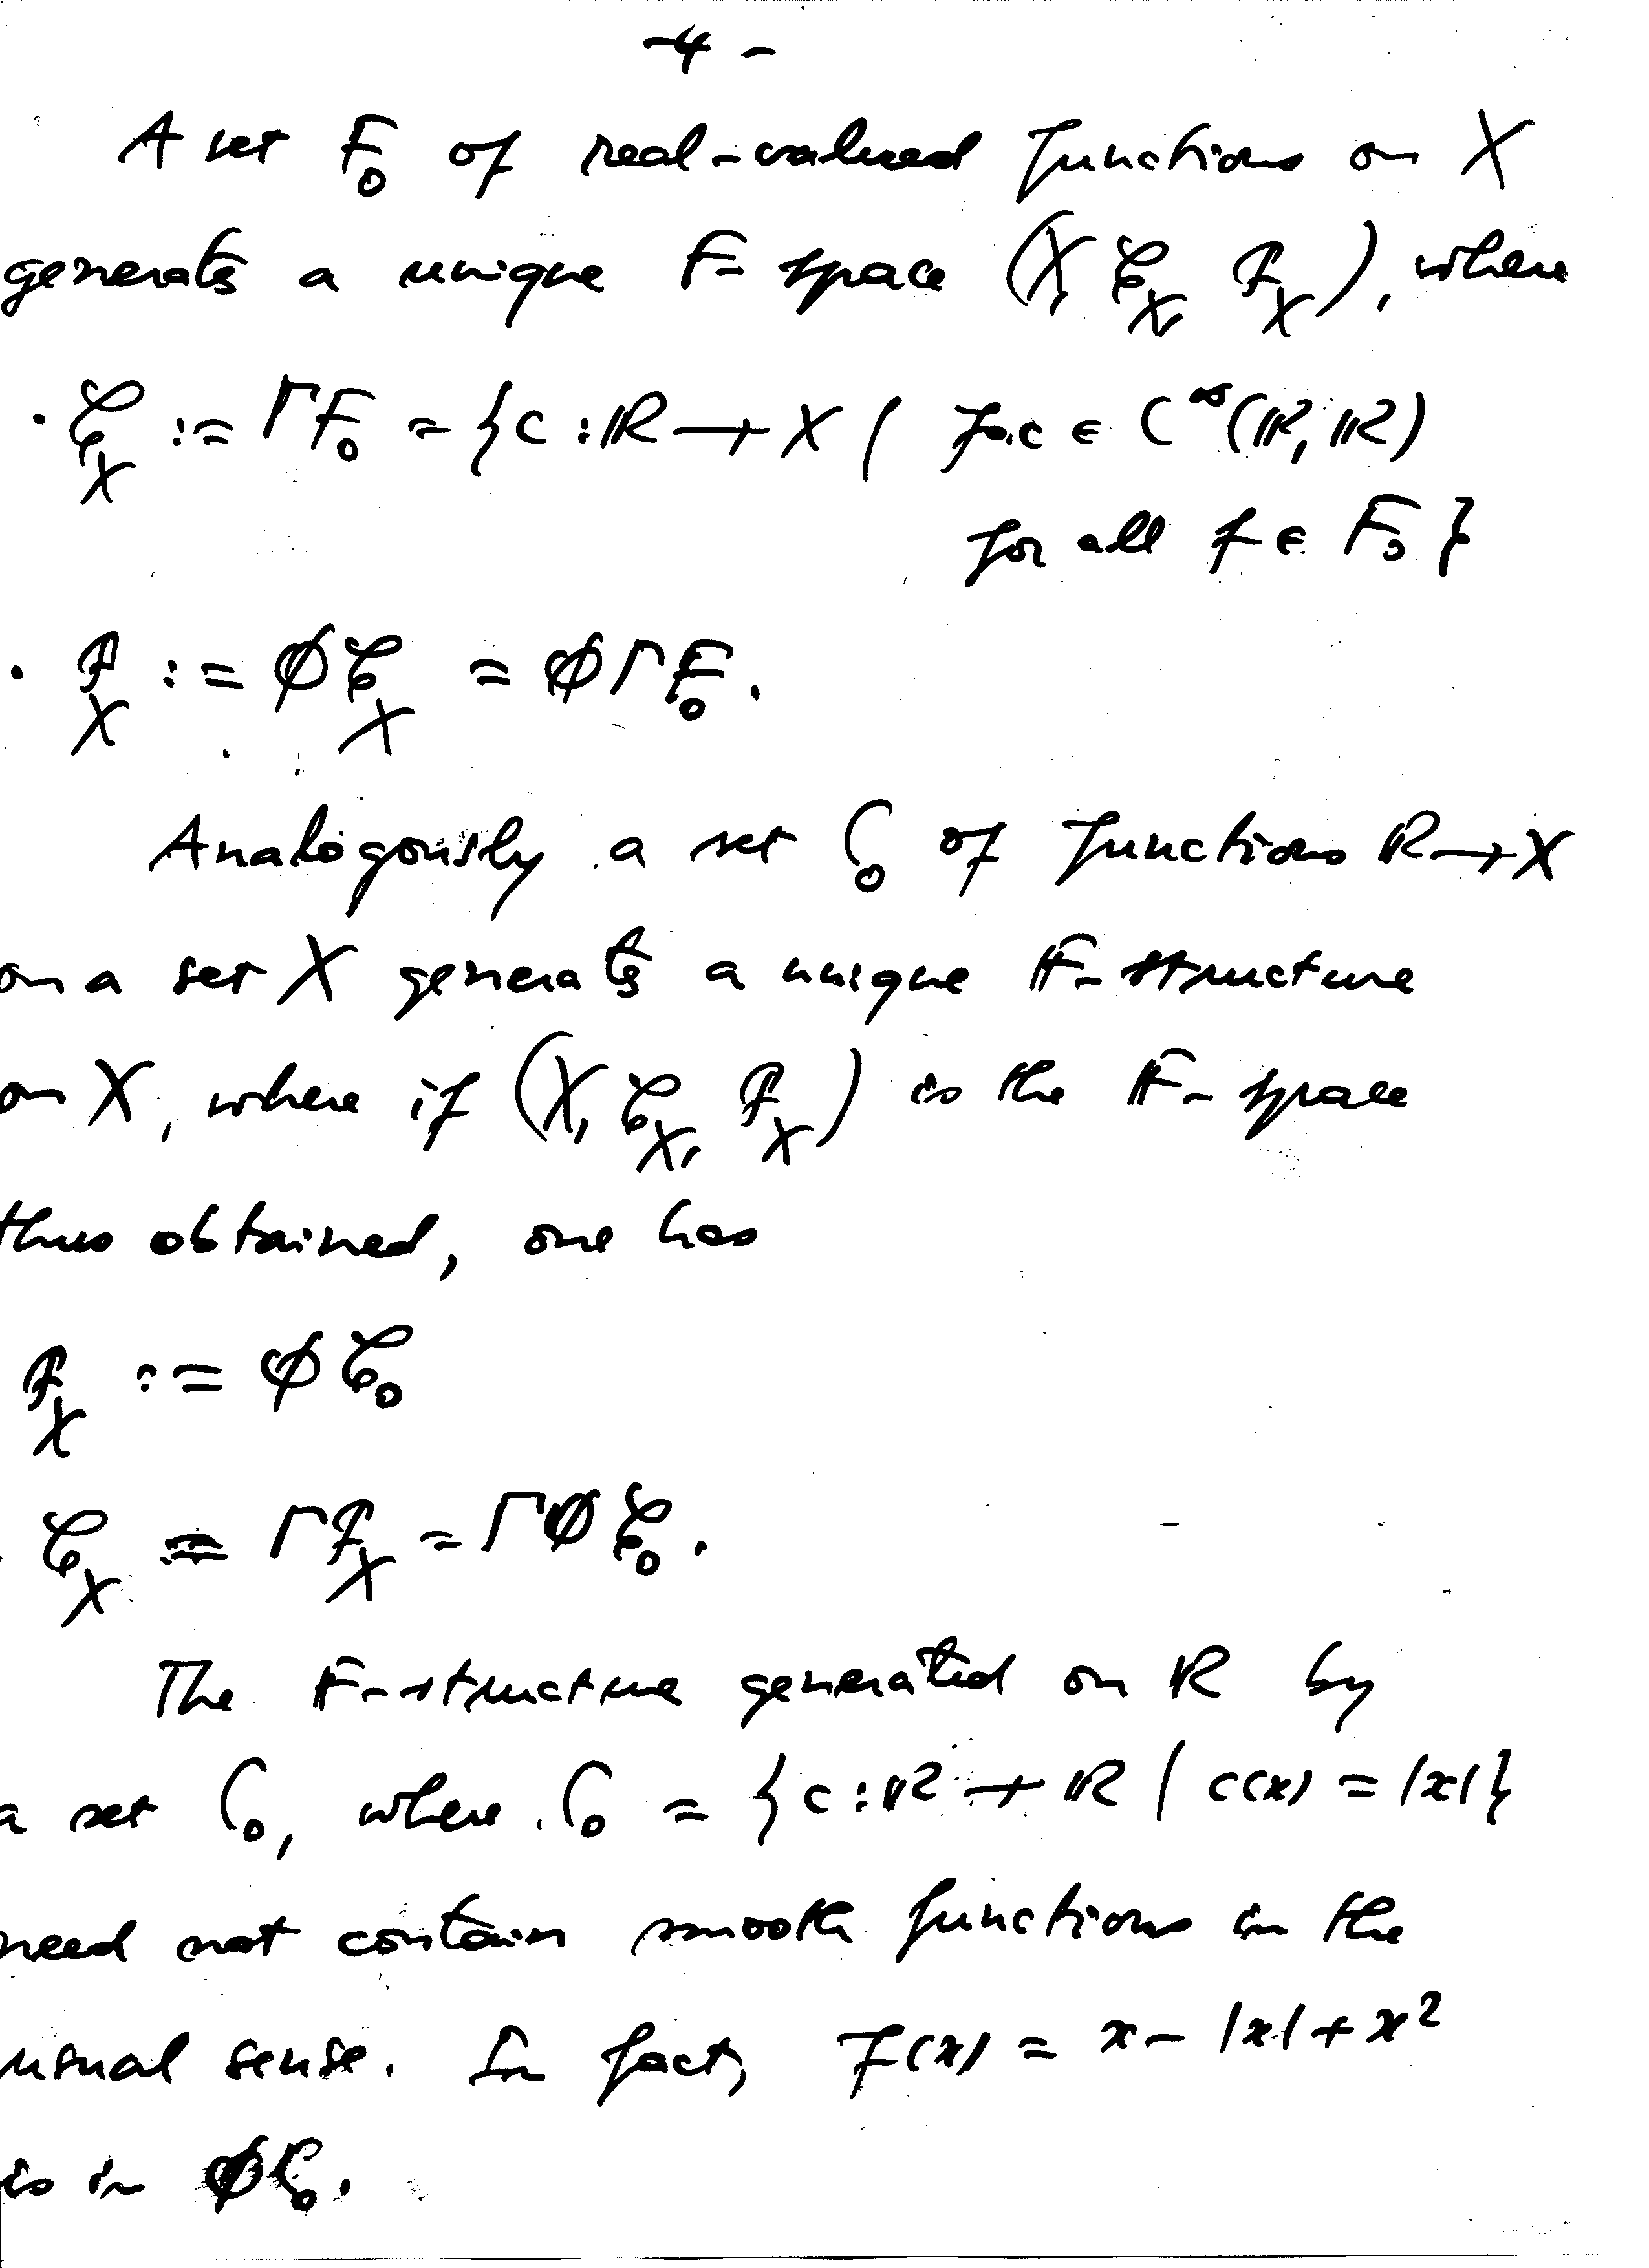 -4-
A set F₀ of real-valued functions on X
generates a unique F-space (X, 𝒞_X, ℱ_X), where
· 𝒞_X := ΓF₀ = {c : ℝ → X | f∘c ∈ C^∞(ℝ, ℝ)
for all f ∈ F₀}
· ℱ_X := Φ𝒞_X = ΦΓF₀.
Analogously a set C₀ of functions ℝ → X
on a set X generates a unique F-structure
on X, where if (X, 𝒞_X, ℱ_X) is the F-space
thus obtained, one has
ℱ_X := Φ𝒞₀
· 𝒞_X := Γℱ_X = ΓΦ𝒞₀.
The F-structure generated on ℝ by
a set C₀, where C₀ = {c : ℝ → ℝ | c(x) = |x|}
need not contain smooth functions in the
usual sense. In fact, f(x) = x - |x| + x²
is in Φ𝒞₀.